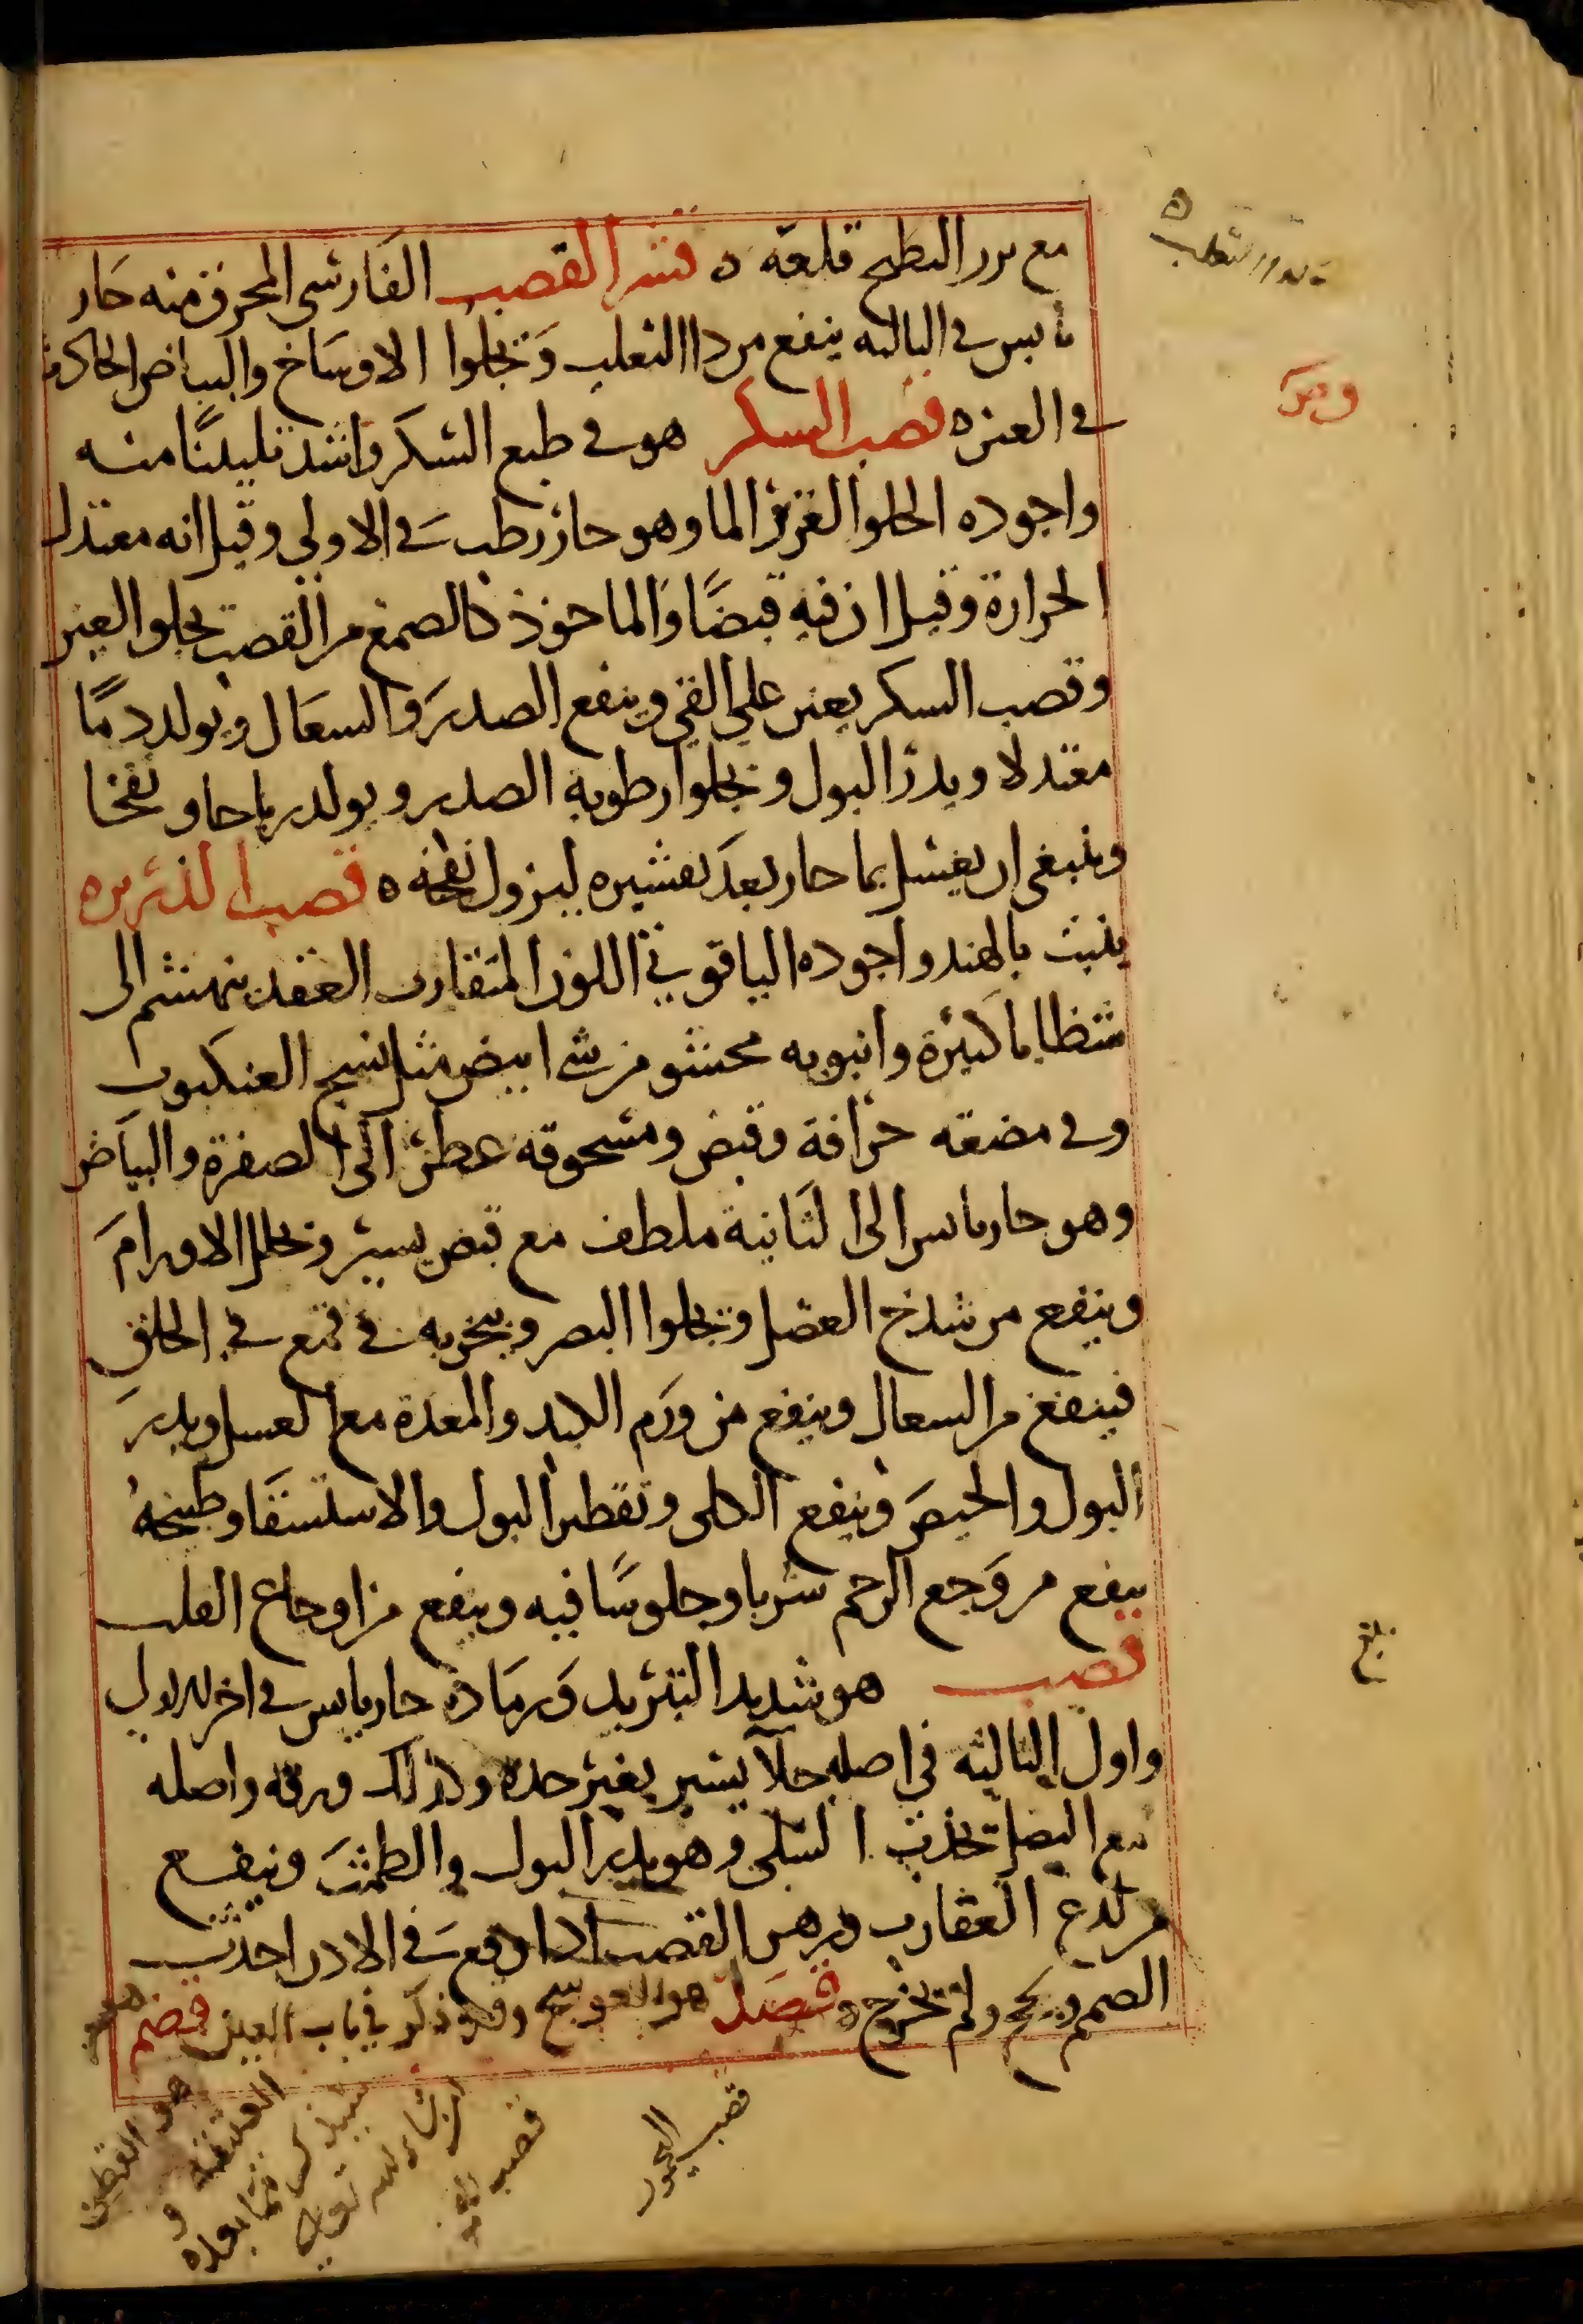 مع بزر البطيخ قلعه ٥ قشر القصب الفارسي المحرق منه حار
يابس في الثالثه ينفع من داا الثعلب وتجلوا الاوساخ والبياض الحادث
في العين ٥ قصب السكر هو في طبع السكر واشد تليينًا منه
واجوده الحلوا الغزيز الما وهو حار رطب في الاولي وقيل انه معتدل
الحرارة وقيل ان فيه قبضًا والماخوذ كالصمغ من القصب تجلوا العين
وقصب السكر يعين علي القي وينفع الصدر والسعال ويولد دمًا
معتدلا ويدر البول وتجلوا رطوبة الصدر ويولد رياحا ونفخا
وينبغي ان يغسل بما حار بعد تقشيره ليزول نفخه ٥ قصب الذريره
ينبت بالهند واجوده الياقوتي اللون المتقارب العقد ينهشم الى
شظايا كثيرة وانبوبه محشو من شي ابيض مثل نسج العنكبوت
وفي مضغه حرافة وقبض ومسحوقه عطر الى الصفرة والبياض
وهو حار يابس الى الثانية ملطف مع قبض يسير وتحلل الاورام
وينفع من شدخ العضل وتجلوا البصر ويبخر به في قمع في الحلق
فينفع من السعال وينفع من ورم الكبد والمعدة مع العسل ويدر
البول والحيض وينفع الكلى وتقطير البول والاستسقا وطبيخه
ينفع من وجع الرحم شربا وجلوسًا فيه وينفع من اوجاع القلب
قصب هو شديد التبريد ورماده حار يابس في اخر الاولي
واول الثالثه في اصله جلآ يسير بغير حدة وكذلك ورقه واصله
مع البصل تجذب السلى وهو يدر البول والطمث وينفع
من لدغ العقارب وزهر القصب اذا وقع في الاذن احدث
الصمم ولحج ولم تخرج ٥ قصد هو العوسج وقد ذكر في باب العين قضم هو
بلغ
قصب
قصب
هو القطن
العتيقة و